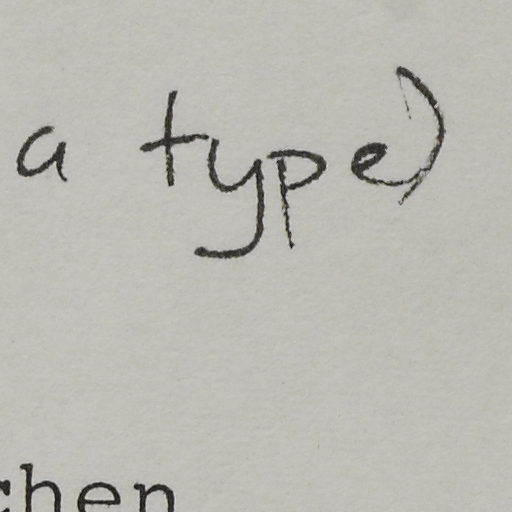 a type)
chen